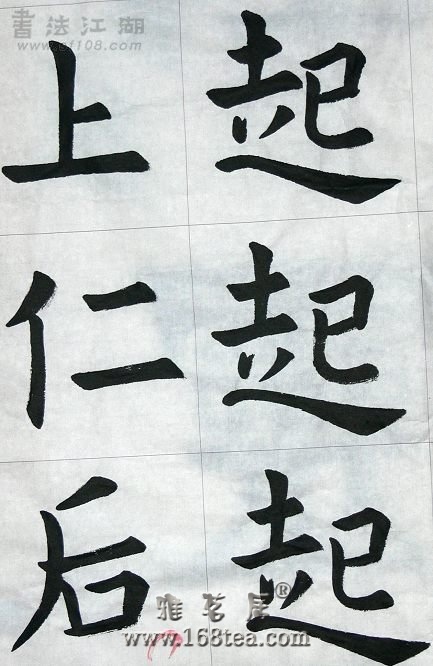 書法江湖
www.cf108.com
起起起
上仁后
雅茗居®
www.168tea.com